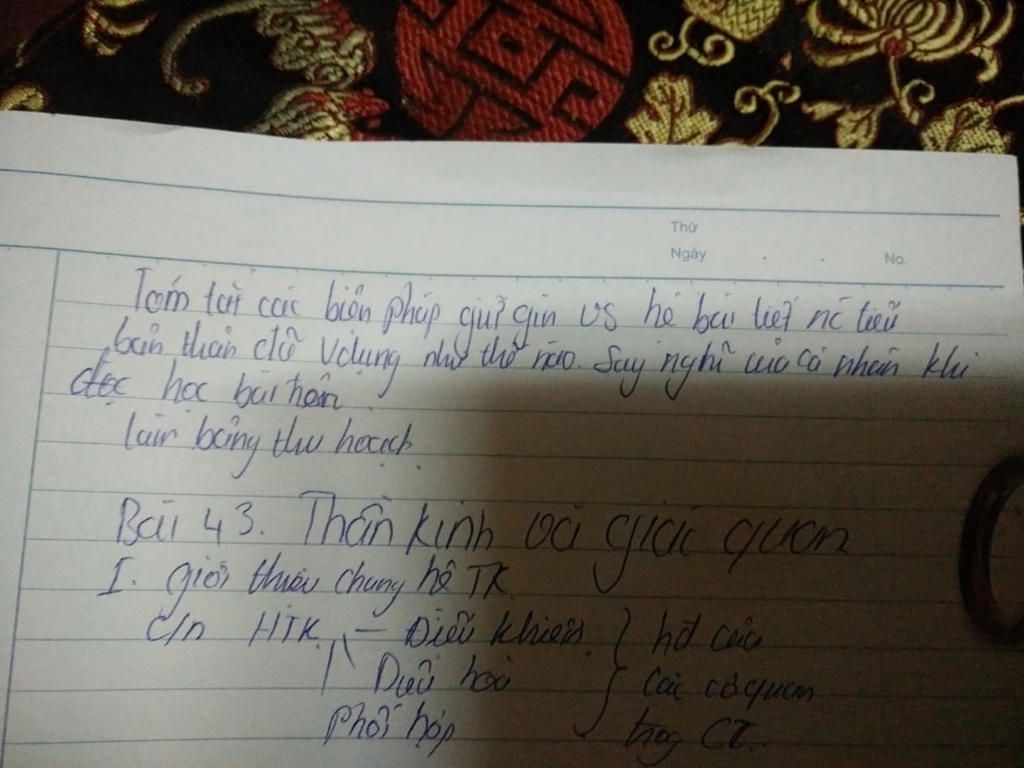 Thứ
Ngày . . No.
Tóm tắt các biện pháp giữ gìn VS hệ bài tiết nc tiểu
bản thân đã vdụng như thế nào. Suy nghĩ của cá nhân khi
đọc học bài trên.
làm bảng thu hoạch.
Bài 43. Thần kinh và giác quan
I. Giới thiệu chung hệ TK.
C/n HTK – Điều khiển } hđ của
Điều hoà các cơ quan
Phối hợp trog CT.